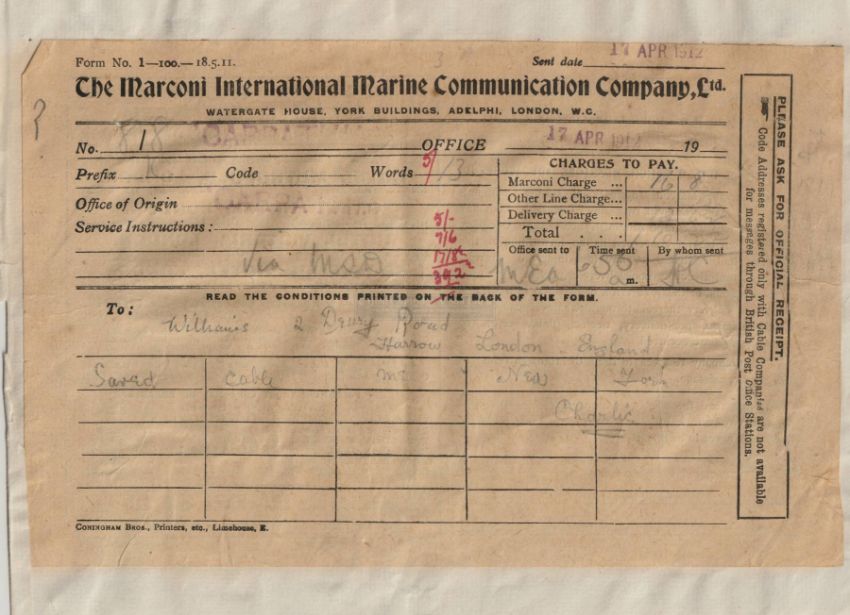 Form No. 1—100.—18.5.11.
Sent date 17 APR 1912
The Marconi International Marine Communication Company, Ltd.
WATERGATE HOUSE, YORK BUILDINGS, ADELPHI, LONDON, W.C.
No. 1 OFFICE 17 APR 1912 19
Prefix Code Words 13
CHARGES TO PAY.
Marconi Charge ... 16 8
Other Line Charge...
Delivery Charge ...
Total . . .
Office of Origin
Service Instructions:
5/-
7/6
Via MSD
Office sent to Time sent By whom sent
MEa m.
READ THE CONDITIONS PRINTED ON THE BACK OF THE FORM.
To: Williams 2 Road
Harrow London England
Saved cable me New York
Charlie
CONINGHAM BROS., Printers, etc., Limehouse, E.
PLEASE ASK FOR OFFICIAL RECEIPT.
Code Addresses registered only with Cable Companies are not available
for messages through British Post Office Stations.